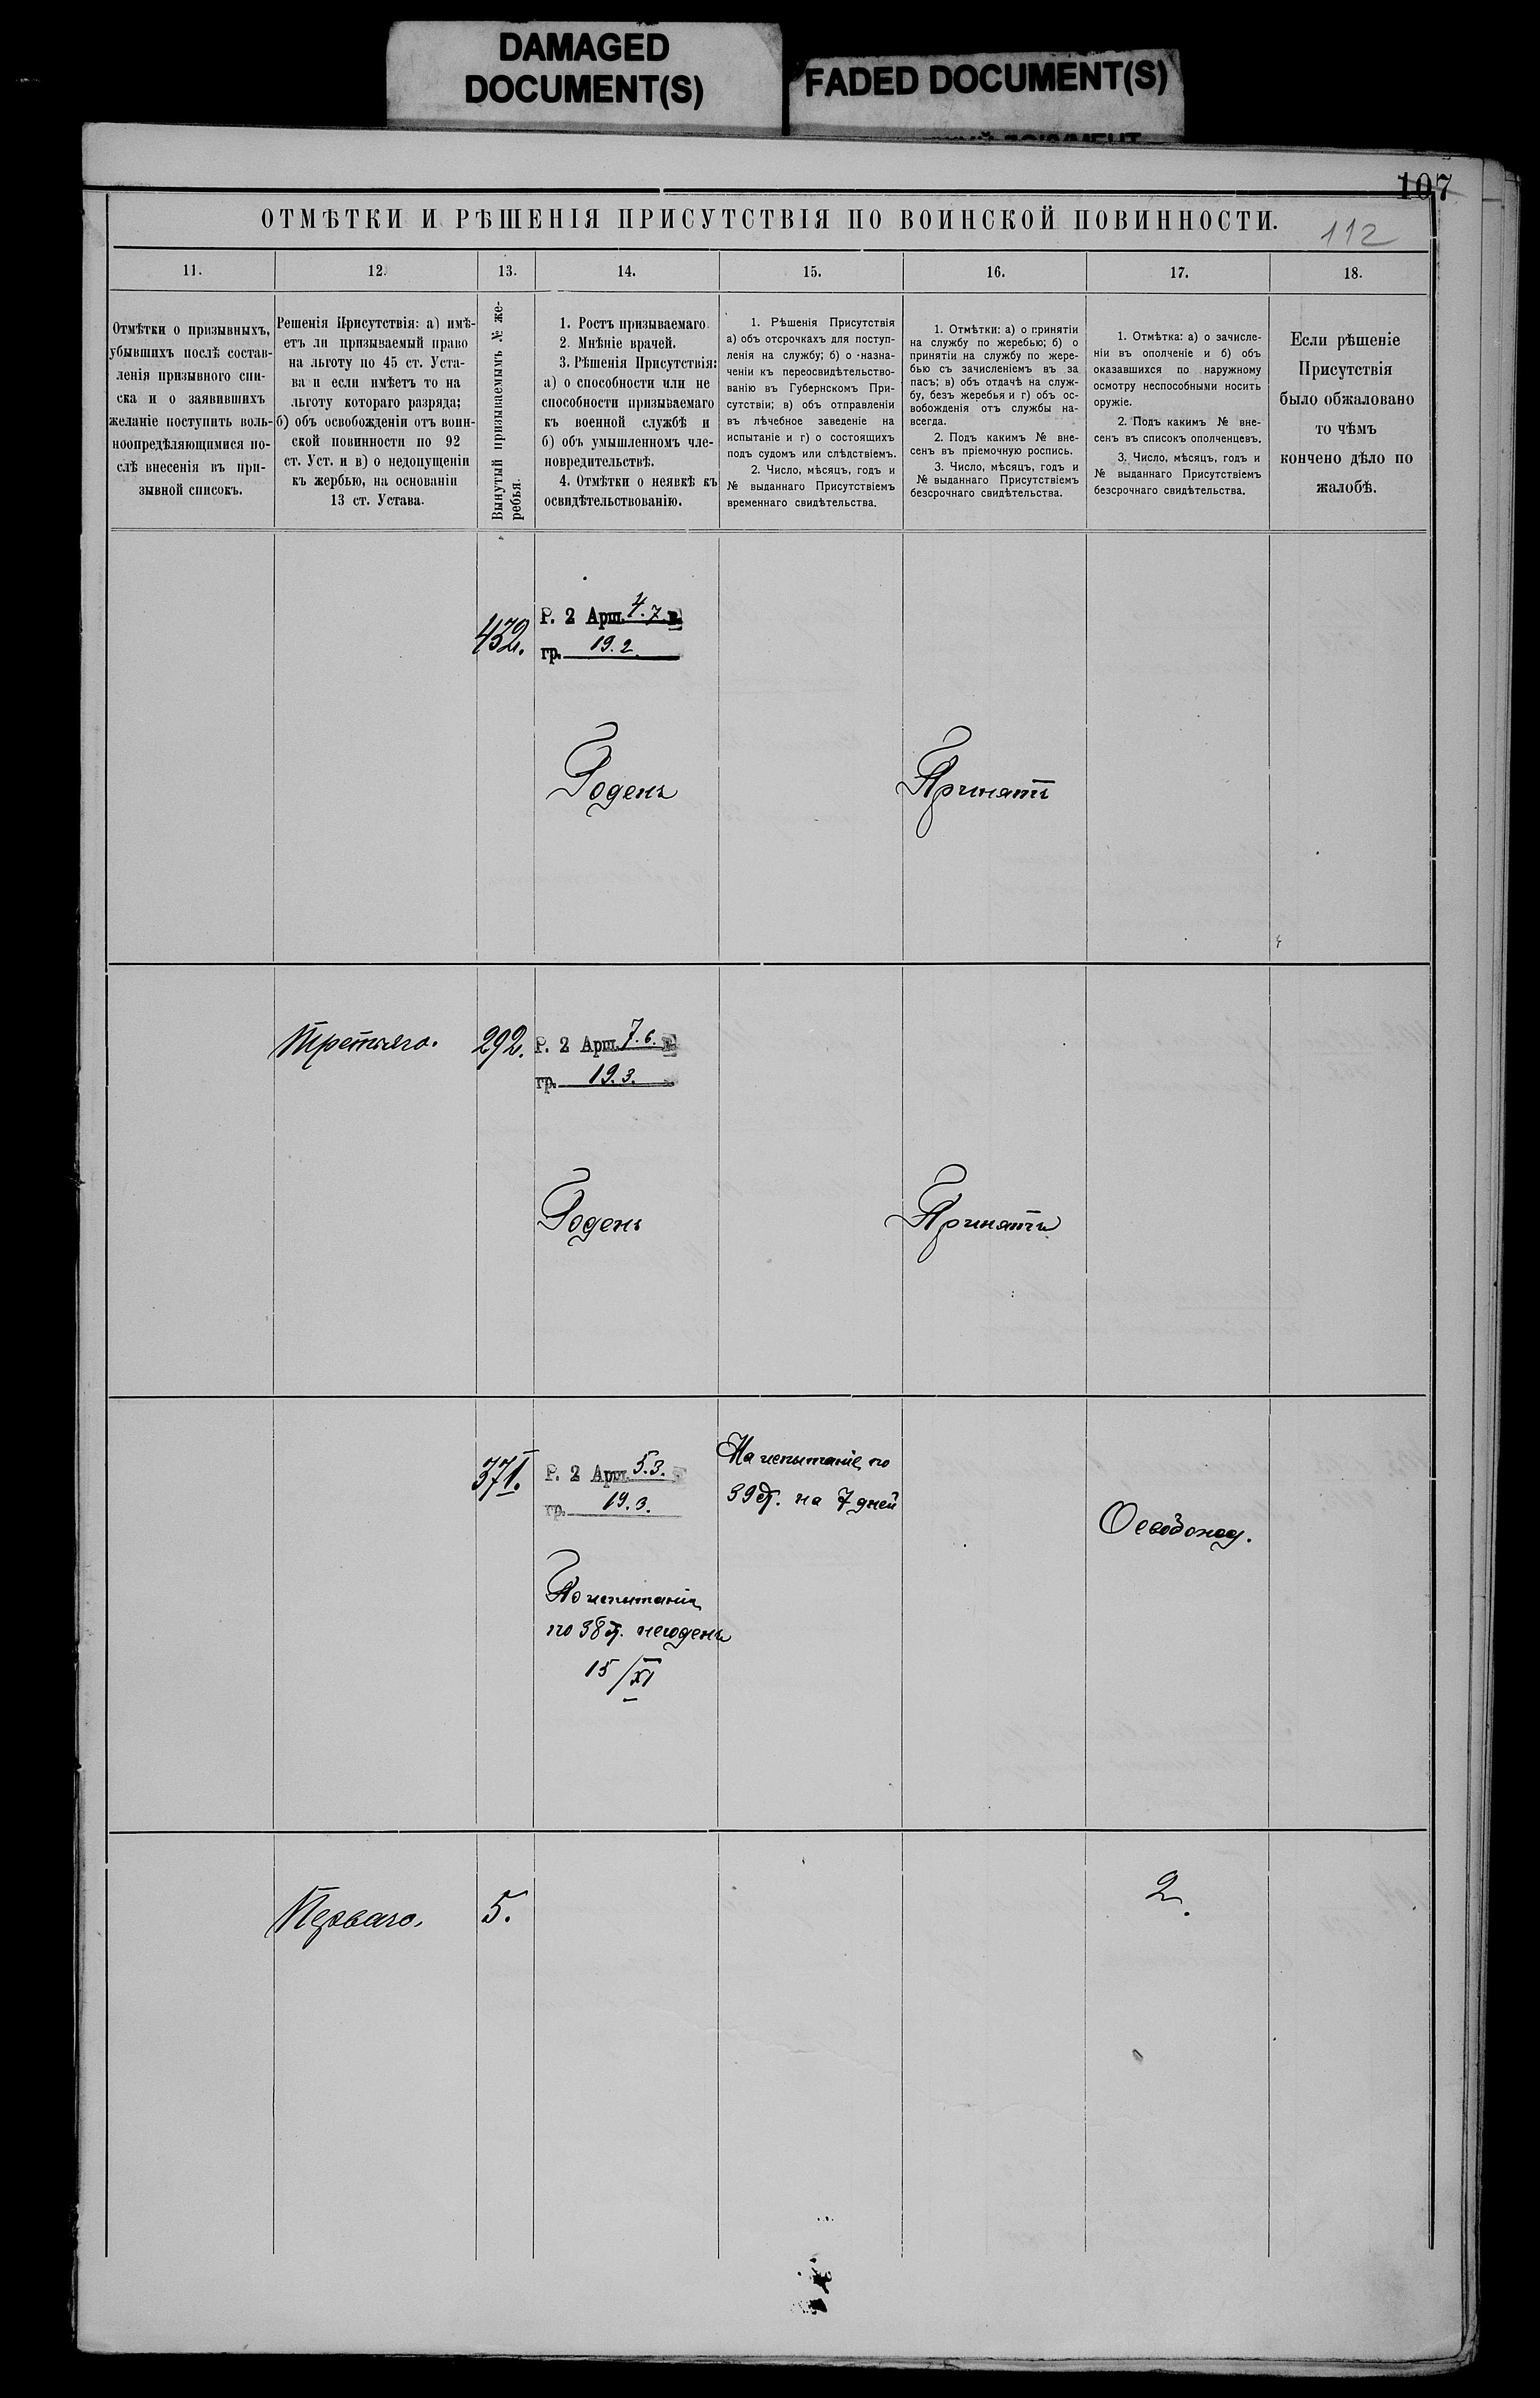 DAMAGED
DOCUMENT(S)
FADED DOCUMENT(S)
107
ОТМѢТКИ И РѢШЕНІЯ ПРИСУТСТВІЯ ПО ВОИНСКОЙ ПОВИННОСТИ.
112
11.
12.
13.
14.
15.
16.
17.
18.
Отмѣтки о призывныхъ,
убывшихъ послѣ состав-
ленія призывного спи-
ска и о заявившихъ
желаніе поступить воль-
ноопредѣляющимися по-
слѣ внесенія въ при-
зывной списокъ.
Решенія Присутствія: а) имѣ-
етъ ли призываемый право
на льготу по 45 ст. Уста-
ва и если имѣетъ то на
льготу котораго разряда;
б) объ освобожденіи отъ воин-
ской повинности по 92
ст. Уст. и в) о недопущеніи
къ жербью, на основаніи
13 ст. Устава.
Вынутый призываемымъ № же-
ребья.
1. Ростъ призываемаго.
2. Мнѣніе врачей.
3. Рѣшенія Присутствія:
а) о способности или не
способности призываемаго
къ военной службѣ и
б) объ умышленномъ чле-
новредительствѣ.
4. Отмѣтки о неявкѣ къ
освидѣтельствованію.
1. Рѣшенія Присутствія
а) объ отсрочкахъ для поступ-
ленія на службу; б) о назна-
ченіи къ переосвидѣтельство-
ванію въ Губернскомъ При-
сутствіи; в) объ отправленіи
въ лѣчебное заведеніе на
испытаніе и г) о состоящихъ
подъ судомъ или слѣдствіемъ.
2. Число, мѣсяцъ, годъ и
№ выданнаго Присутствіемъ
временнаго свидѣтельства.
1. Отмѣтки: а) о принятіи
на службу по жеребью; б) о
принятіи на службу по жере-
бью съ зачисленіемъ въ за
пасъ; в) объ отдачѣ на служ-
бу, безъ жеребья и г) объ ос-
вобожденія отъ службы на-
всегда.
2. Подъ какимъ № вне-
сенъ въ пріемочную роспись.
3. Число, мѣсяцъ, годъ и
№ выданнаго Присутствіемъ
безсрочнаго свидѣтельства.
1. Отмѣтка: а) о зачисле-
ніи въ ополченіе и б) объ
оказавшихся по наружному
осмотру неспособными носить
оружіе.
2. Подъ какимъ № вне-
сенъ въ списокъ ополченцевъ.
3. Число, мѣсяцъ, годъ и
№ выданнаго Присутствіемъ
безсрочнаго свидѣтельства.
Если рѣшеніе
Присутствія
было обжаловано
то чѣмъ
кончено дѣло по
жалобѣ.
Р. 2 Арш. 4.7. в.
гр. 19.2.
Годенъ
Принятъ
Третьяго.
292.
Р. 2 Арш. 7.6. в.
гр. 19.3.
Годенъ
Принятъ
371.
Р. 2 Арш. 5.3. в.
гр. 19.3.
По испытаніи
по 38 ст. негоденъ
15/XI
На испытаніе по
39 ст. на 7 дней
Освобожд.
Перваго.
5.
2.